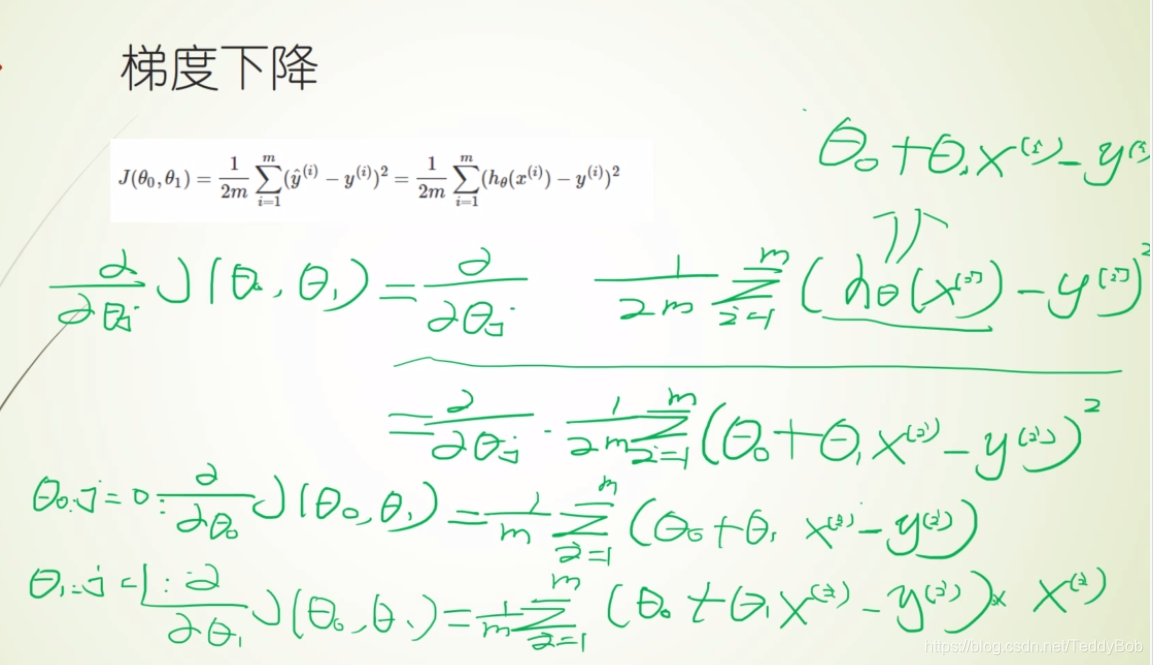 梯度下降
θ₀+θ₁x⁽ⁱ⁾-y⁽ⁱ
J(θ₀, θ₁) = 1/2m ∑ᵢ₌₁ᵐ (ŷ⁽ⁱ⁾ − y⁽ⁱ⁾)² = 1/2m ∑ᵢ₌₁ᵐ (h_θ(x⁽ⁱ⁾) − y⁽ⁱ⁾)²
∂/∂θⱼ J(θ₀, θ₁) = ∂/∂θⱼ 1/2m ∑ᵢ₌₁ᵐ (hθ(x⁽ⁱ⁾) − y⁽ⁱ⁾)²
= ∂/∂θⱼ · 1/2m ∑ᵢ₌₁ᵐ (θ₀+θ₁x⁽ⁱ⁾ − y⁽ⁱ⁾)²
θ₀: j=0: ∂/∂θ₀ J(θ₀,θ₁) = 1/m ∑ᵢ₌₁ᵐ (θ₀+θ₁ x⁽ⁱ⁾ − y⁽ⁱ⁾)
θ₁: j=1: ∂/∂θ₁ J(θ₀,θ₁) = 1/m ∑ᵢ₌₁ᵐ (θ₀+θ₁x⁽ⁱ⁾ − y⁽ⁱ⁾)× x⁽ⁱ⁾
https://blog.csdn.net/TeddyBob